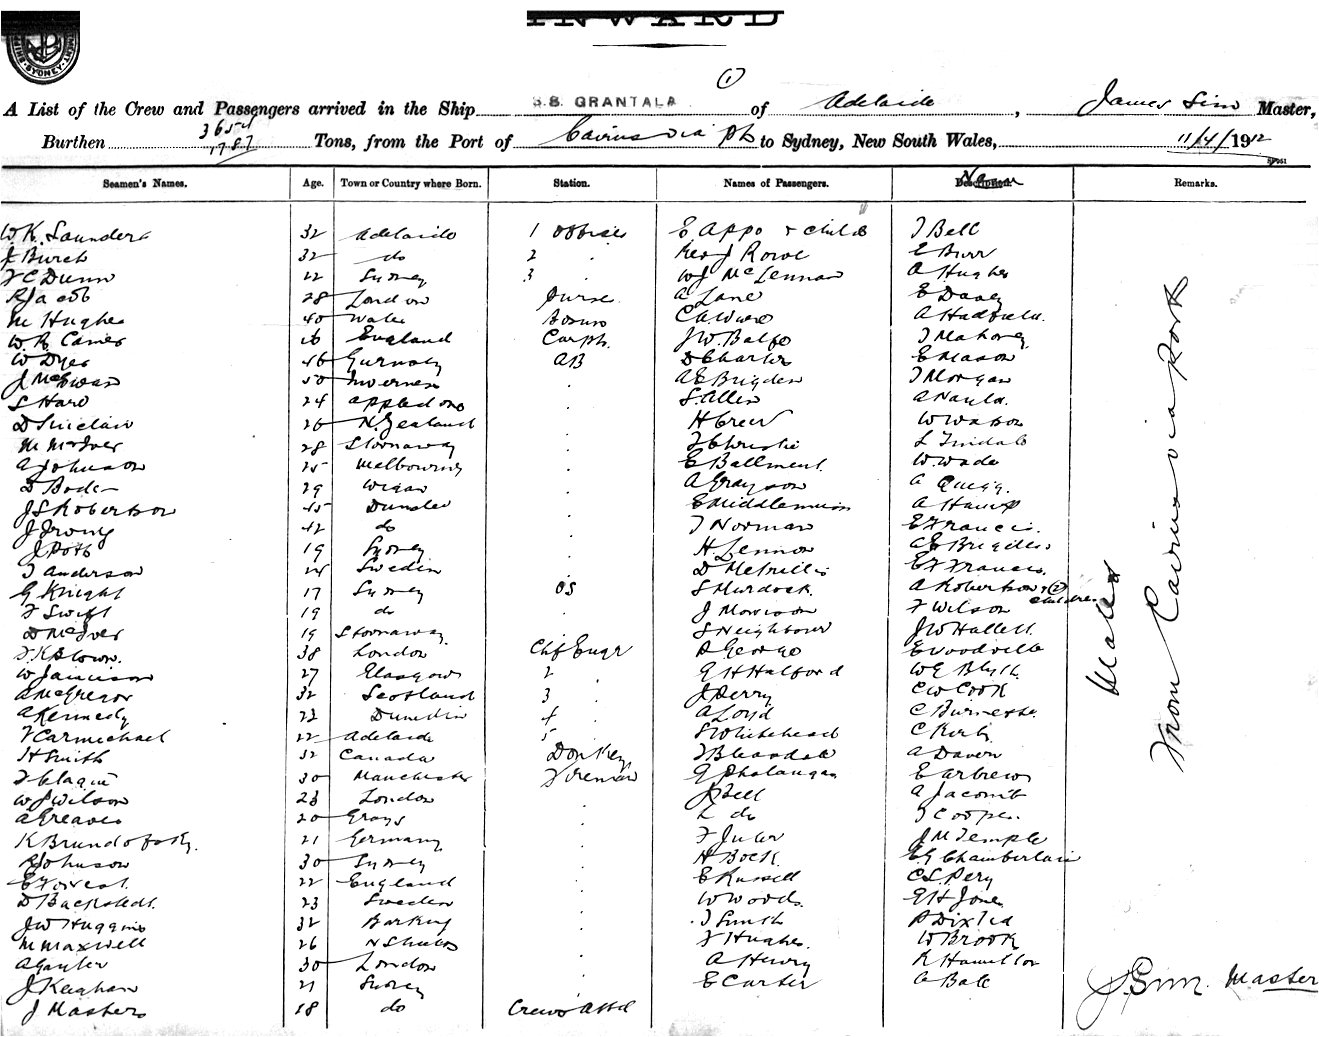 INWARD
SYDNEY
(1)
A List of the Crew and Passengers arrived in the Ship S.S. GRANTALA of Adelaide, James Sim Master,
Burthen 3654 1787 Tons, from the Port of Cairns via Pts to Sydney, New South Wales, 11/4/1912
Seamen's Names. Age. Town or Country where Born. Station. Names of Passengers. Description. Remarks.
W K Saunders 32 Adelaide 1 Officer E Appo + child T Bell
J Burch 32 do 2 Geo J Rowe E Burr
F C Dunn 22 Sydney 3 W J McLennan A Hughes
R Jacob 28 London Purser A Lane E Davey
M Hughes 40 Wales C A Ward A Hadfield
W R 26 England Carptr J W Balfe T Mahoney
W Dyer 46 AB D Charter E Mason
J McEwan 50 Inverness A E Brigden T Morgan
S Hard 24 Appledore S Allen A
D Sinclair 26 N. Zealand H Greer W Watson
M McIver 28 Stornaway F Christie L Tindale
A Johnson 25 Melbourne E Ballment W. Wade
D Boden 29 Wigan A Grayson A Quegg
J S Robertson 45 Dundee E Middlemiss A
J Irving 42 do T Norman E Francis
J Potts 19 Sydney H Lennon A E Brigden
T Anderson 24 Sweden D E F Francis
G Knight 17 Sydney OS S Murdock A Robertson + (2) children
F Swift 19 do J Morrison F Wilson
D McIver 19 Stornaway S Neighbour J W Hallett
F K Blown 38 London Chf Engr R George E Woodville
W Jamieson 27 Glasgow 2 G H Halford W E Blyth
A McGregor 32 Scotland 3 J Perry C W Cook
A Kennedy 22 Dunedin 4 A Loyd C
F Carmichael 22 Adelaide 5 S Whitehead C Kirby
H Smith 32 Canada Donkey F Bleasdale A
F 30 Manchester Fireman G Phalangan E
W J Wilson 23 London J Bell A Jacomb
A Greaves 20 Grays L do T Cooper
K 21 Germany F J M Temple
R Johnson 30 Sydney H Bock E G Chamberlain
E Forrest 22 England E Russell C S Pery
D Backstedt 23 Sweden W Woods E H Jones
J W Huggins 32 Barking T Smith
M Maxwell 26 N Shields F Hughes W Brook
A 30 London A Henry R Hamilton
J Keighan 21 Sydney E Carter A Ball
J Masters 18 do Crews Attd
Males
From Cairns via Ports
J. Sim. Master